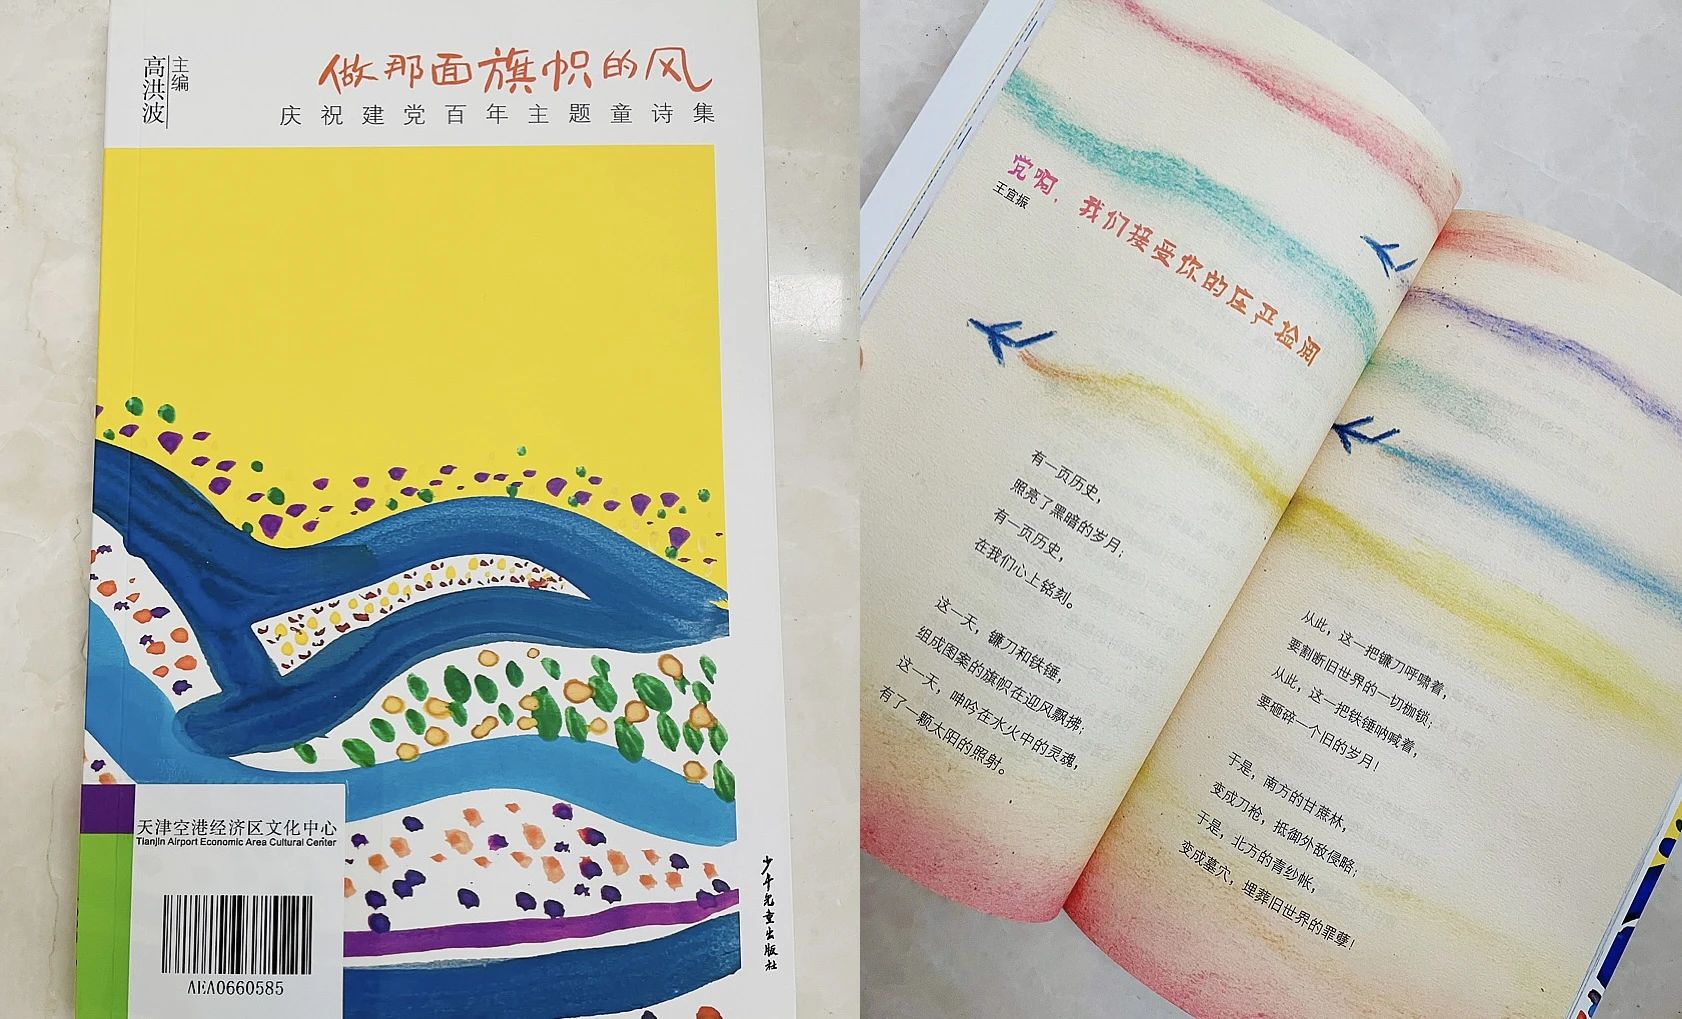 做那面旗帜的风
庆祝建党百年主题童诗集
主编
高洪波
天津空港经济区文化中心
Tianjin Airport Economic Area Cultural Center
AEA0660585
少年儿童出版社
党啊，我们接受你的庄严检阅
王宜振
有一页历史，
照亮了黑暗的岁月；
有一页历史，
在我们心上铭刻。
这一天，镰刀和铁锤，
组成图案的旗帜在迎风飘拂；
这一天，呻吟在水火中的灵魂，
有了一颗太阳的照射。
从此，这一把镰刀呼啸着，
要割断旧世界的一切枷锁；
从此，这一把铁锤呐喊着，
要砸碎一个旧的岁月！
于是，南方的甘蔗林，
变成刀枪，抵御外敌侵略；
于是，北方的青纱帐，
变成墓穴，埋葬旧世界的罪孽！